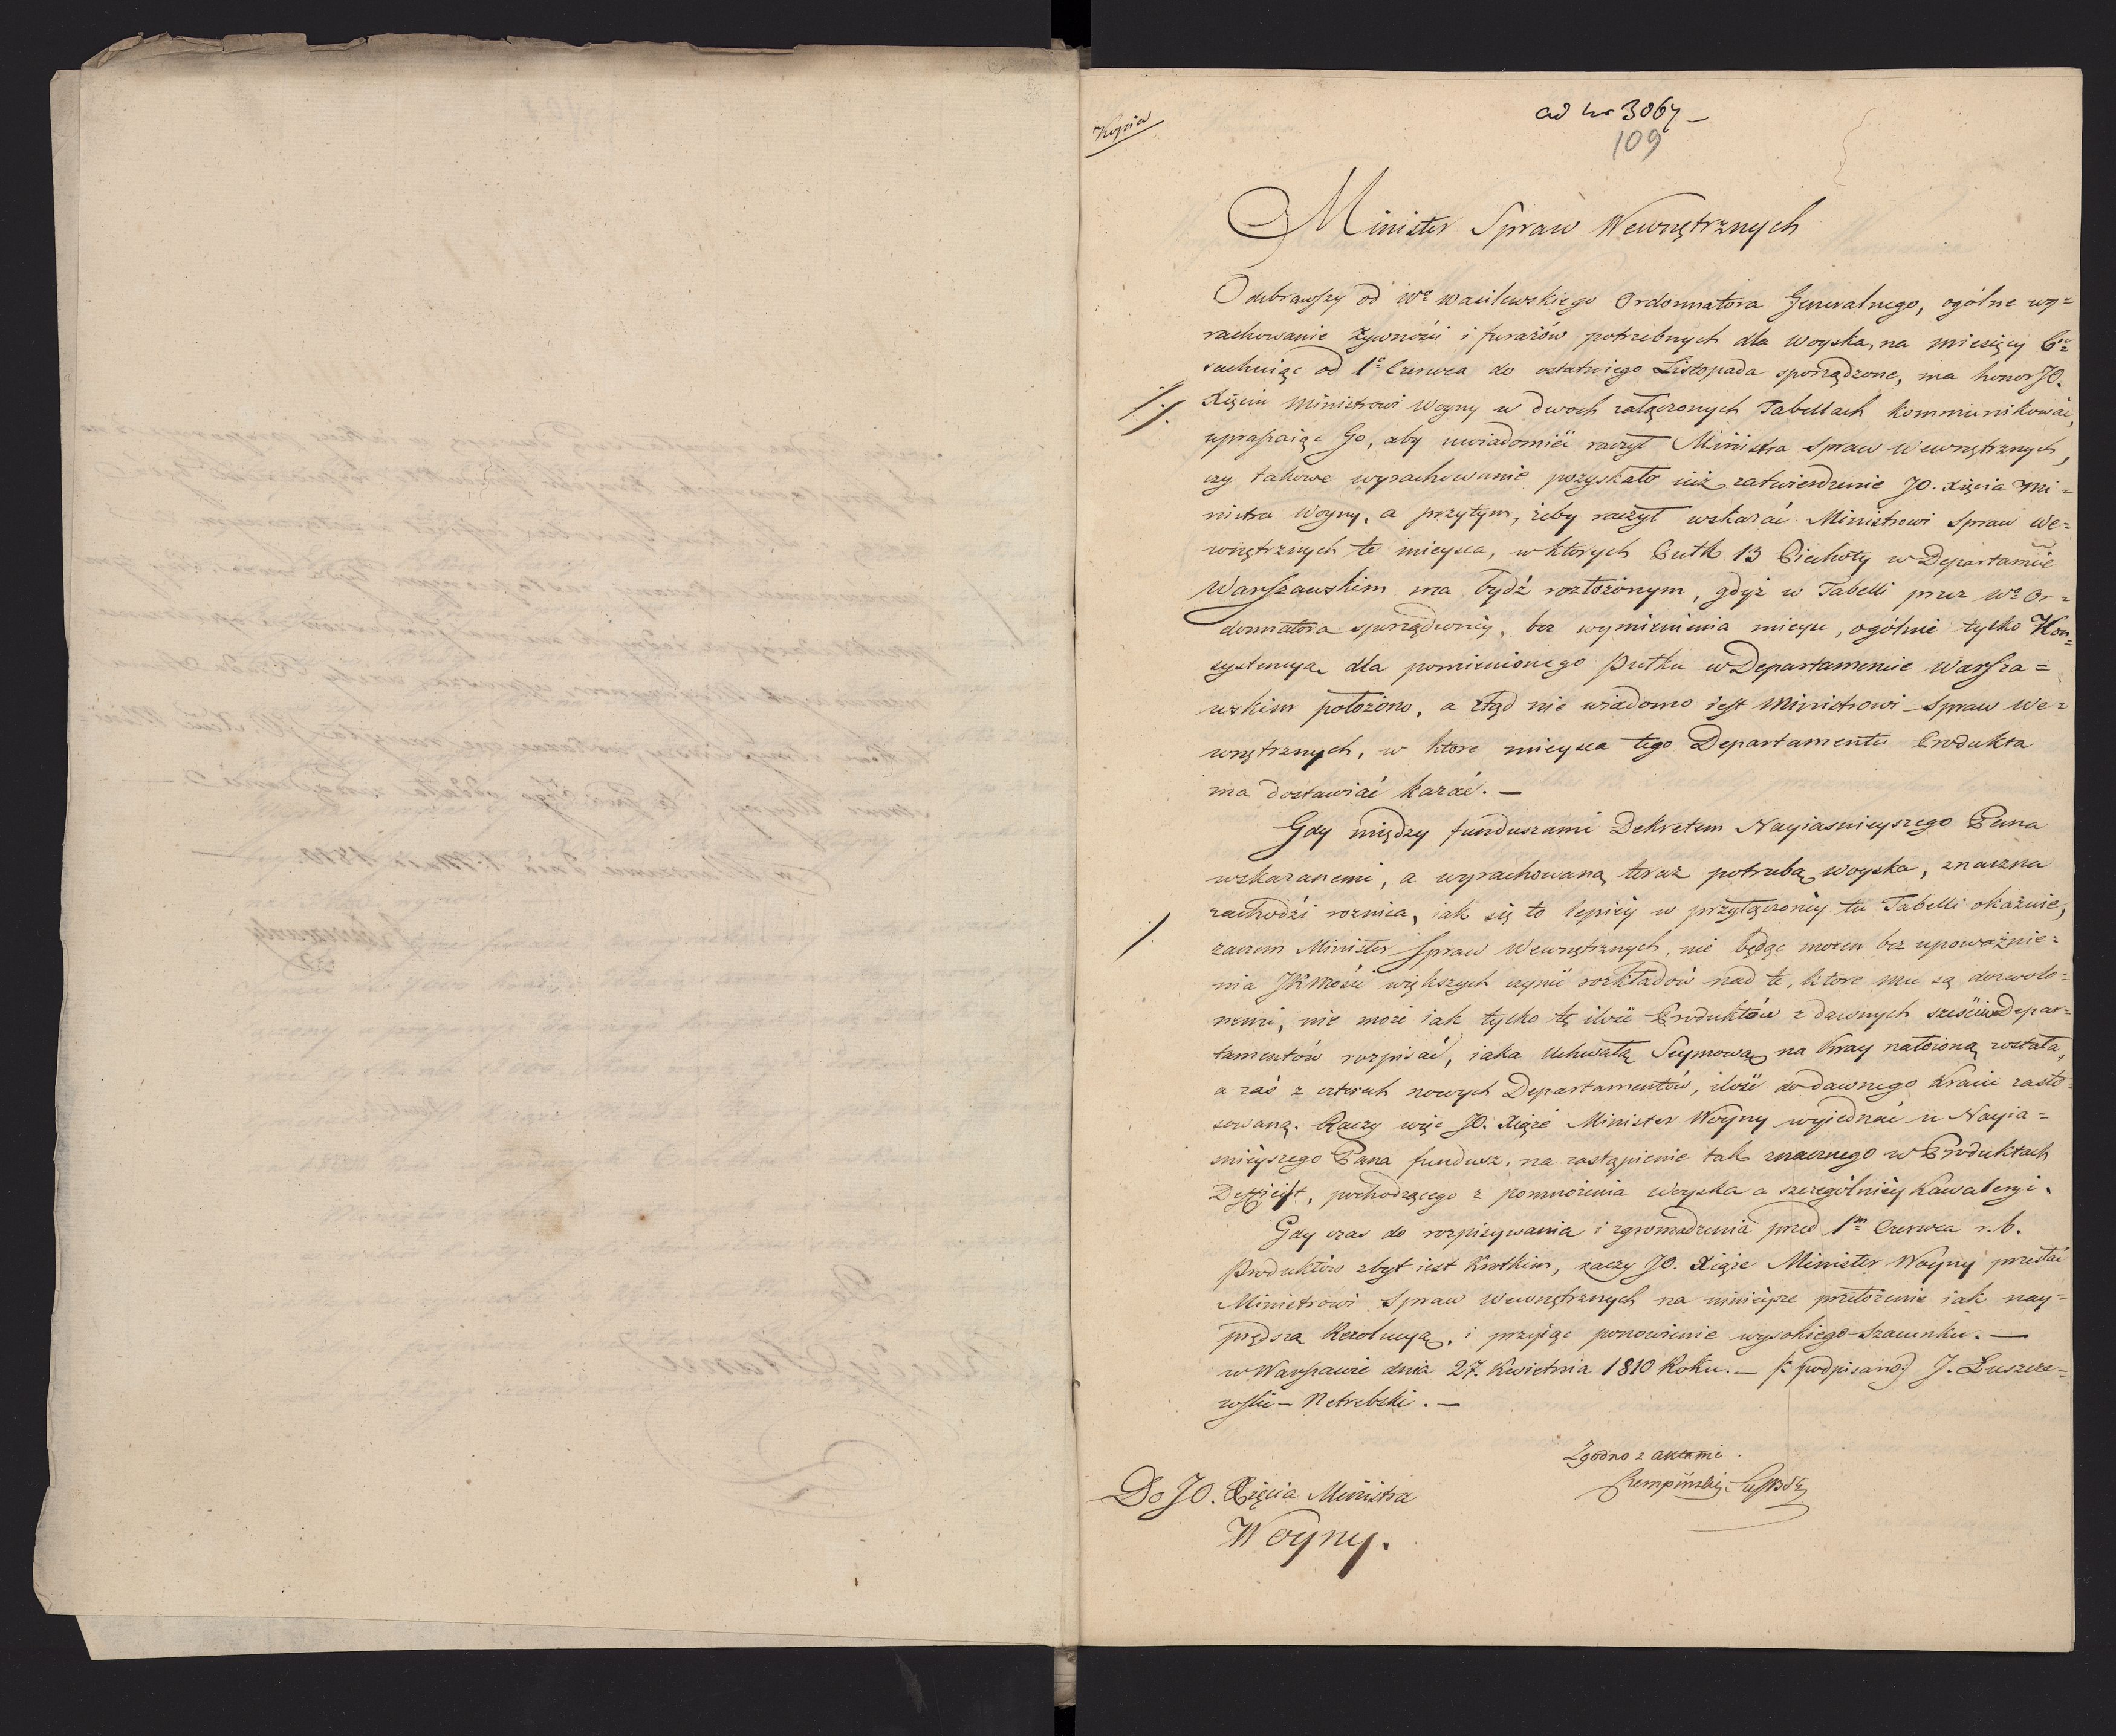 Kopia
ad nr 3067 —
109
Minister Spraw Wewnętrznych
Odebrawszy od Wo Wasilewskiego Ordonnatora Generalnego, ogólne wy=
rachowanie żywności i furażów potrzebnych dla Woyska, na miesięcy 6ć
rachuiąc od 1o Czerwca do ostatniego Listopada sporządzone, ma honor JO.
Xięciu Ministrowi Woyny w dwoch załączonych Tabellach kommunikować,
upraszaiąc Go, aby uwiadomić raczył Ministra Spraw Wewnętrznych,
czy takowe wyrachowanie pozyskało iuż zatwierdzenie JO. Xięcia Mi=
nistra Woyny, a przytym, żeby raczył wskazać Ministrowi Spraw We=
wnętrznych te mieysca, w których Pułk 13 Piechoty w Departamcie
Warszawskim ma bydź rozłożonym, gdyż w Tabelli przez Wo Or=
donnatora sporządzoney, bez wymienienia mieysc, ogólnie tylko Kon=
systencyą dla pomienionego Pułku w Departamencie Warsza=
wskim położono, a ztąd nie wiadomo iest Ministrowi Spraw We=
wnętrznych, w ktore mieysca tego Departamentu Produkta
ma dostawiać kazać. —
Gdy między funduszami Dekretem Nayiasnieyszego Pana
wskazanemi, a wyrachowaną teraz potrzebą woyska, znaczna
zachodzi roznica, iak się to lepiéy w przyłączonéy tu Tabelli okazuie,
zaczem Minister Spraw Wewnętrznych, nie będąc mocen bez upoważnie=
nia JKMości większych czynić rozkładów nad te, ktore mu są dozwolo=
nemi, nie może iak tylko tę ilość Produktów z dawnych sześciu Depar=
tamentów rozpisać, iaka Uchwałą Seymową na Kray nałożoną została,
a zaś z czterech nowych Departamentów, ilość do dawnego Kraiu zasto=
sowaną. Raczy więc JO. Xiąże Minister Woyny wyjednać u Nayia=
snieyszego Pana fundusz, na zastąpienie tak znacznego w Produktach
Deficit, pochodzącego z pomnożenia Woyska a szczególniéy Kawaleryi.
Gdy czas do rozpisywania i zgromadzenia przed 1m Czerwca r. b.
Produktów zbyt iest krotkim, raczy JO. Xiąże Minister Woyny przesłać
Ministrowi Spraw Wewnętrznych na ninieysze przełożenie iak nay=
prędszą Rezolucyą, i przyiąc ponowienie wysokiego szacunku. —
w Warszawie dnia 27. Kwietnia 1810 Roku. — /: podpisano :/ J. Łuszcze=
wski — Netrebski. —
Zgodno z aktami.
Rempiński
Do JO. Xięcia Ministra
Woyny.